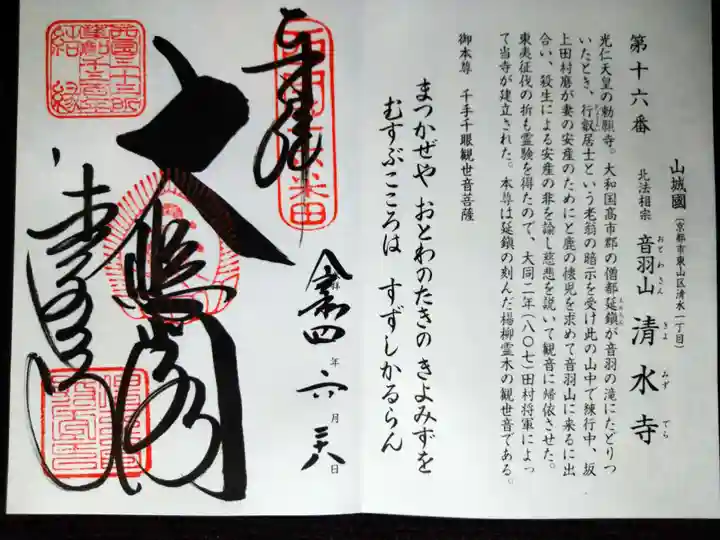 第十六番
山城國(京都市東山区清水一丁目)
北法相宗 音羽山 清水寺
おとわさん きよ みず でら
光仁天皇の勅願寺。大和国高市郡の僧都延鎮が音羽の滝にたどりつ
いたとき、行叡居士という老翁の暗示を受け此の山中で練行中、坂
上田村麿が妻の安産のためにと鹿の懐児を求めて音羽山に来るに出
合い、殺生による安産の非を諭し慈悲を説いて観音に帰依させた。
東夷征伐の折も霊験を得たので、大同二年(八〇七)田村将軍によっ
て当寺が建立された。本尊は延鎮の刻んだ楊柳霊木の観世音である。
御本尊 千手千眼観世音菩薩
まつかぜや おとわのたきの きよみずを
むすぶこころは すずしかるらん
奉拝
令和四年六月二十八日
大悲閣
清水寺
西国三十三所
草創千三百年
結縁